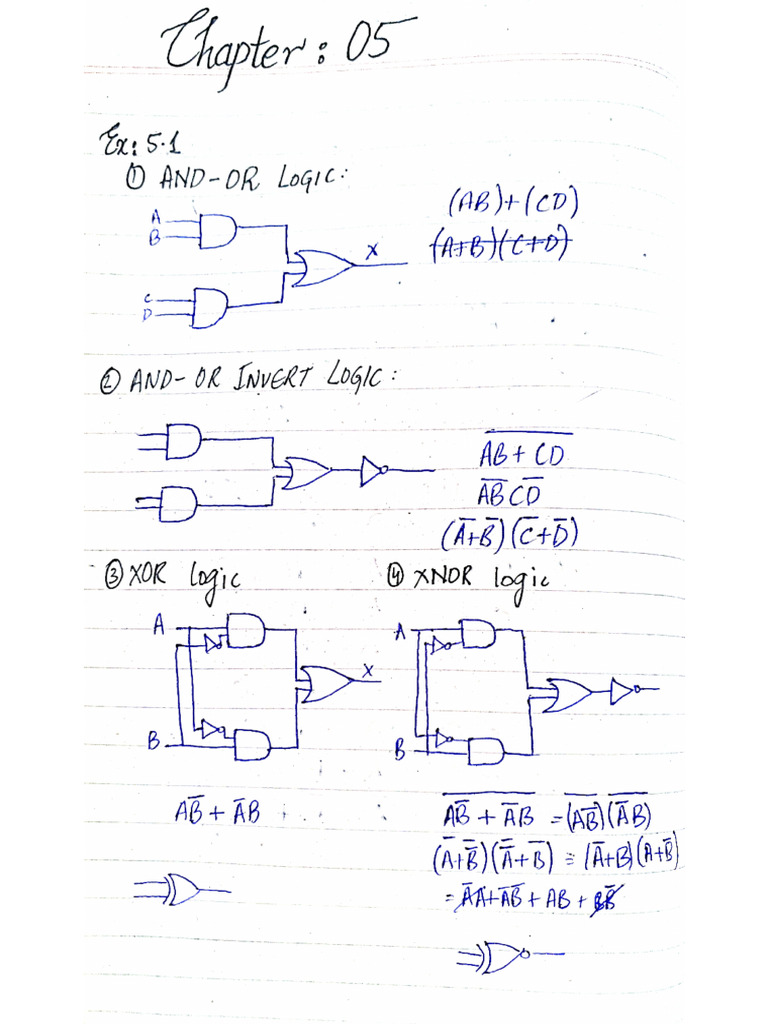 Chapter: 05
Ex: 5.1
① AND-OR LOGIC:
A
B
C
D
X
(AB)+(CD)
(A+B)(C+D)
② AND-OR INVERT LOGIC:
A̅B̅ ̅+̅ ̅C̅D̅
A̅B̅ C̅D̅
(A̅+B̅)(C̅+D̅)
③ XOR logic
A
B
X
AB̅ + A̅B
④ XNOR logic
A
B
A̅B̅̅ ̅+̅ ̅A̅̅B̅ = (A̅B̅̅)(A̅̅B̅)
(A̅+B̅̅)(A̅̅+B̅) = (A̅+B)(A+B̅)
= A̅A+A̅B̅ + AB + BB̅